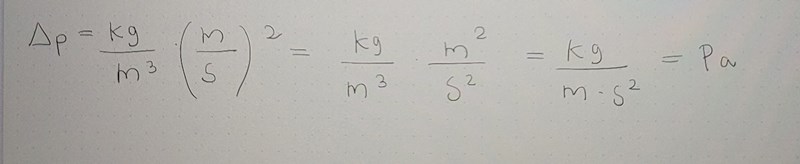 Δp = kg/m³ · (m/s)² = kg/m³ · m²/s² = kg/m·s² = Pa